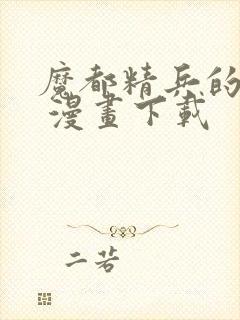 魔都精兵的
漫畫下載
二若